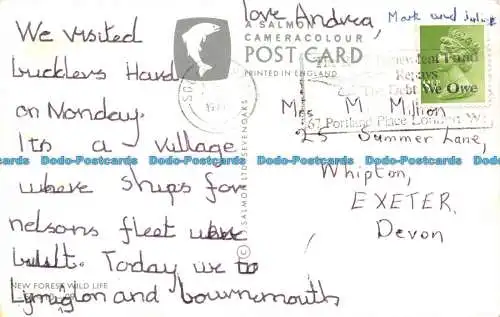 love Andrea, Mark and Julie
We visited
bucklers Hard
on Monday.
Its a village
where ships for
nelsons fleet where
built. Today we to
Lymington and bournemouth
A SALMON
CAMERACOLOUR
POST CARD
PRINTED IN ENGLAND
Benevolent Fund
Repays
The Debt We Owe
67 Portland Place London W1
Mrs M Milton
25 Summer Lane,
Whipton,
EXETER,
Devon
© J SALMON LTD SEVENOAKS
NEW FOREST WILD LIFE
Dodo-Postcards Dodo-Postcards Dodo-Postcards Dodo-Postcards Dodo-Postcards